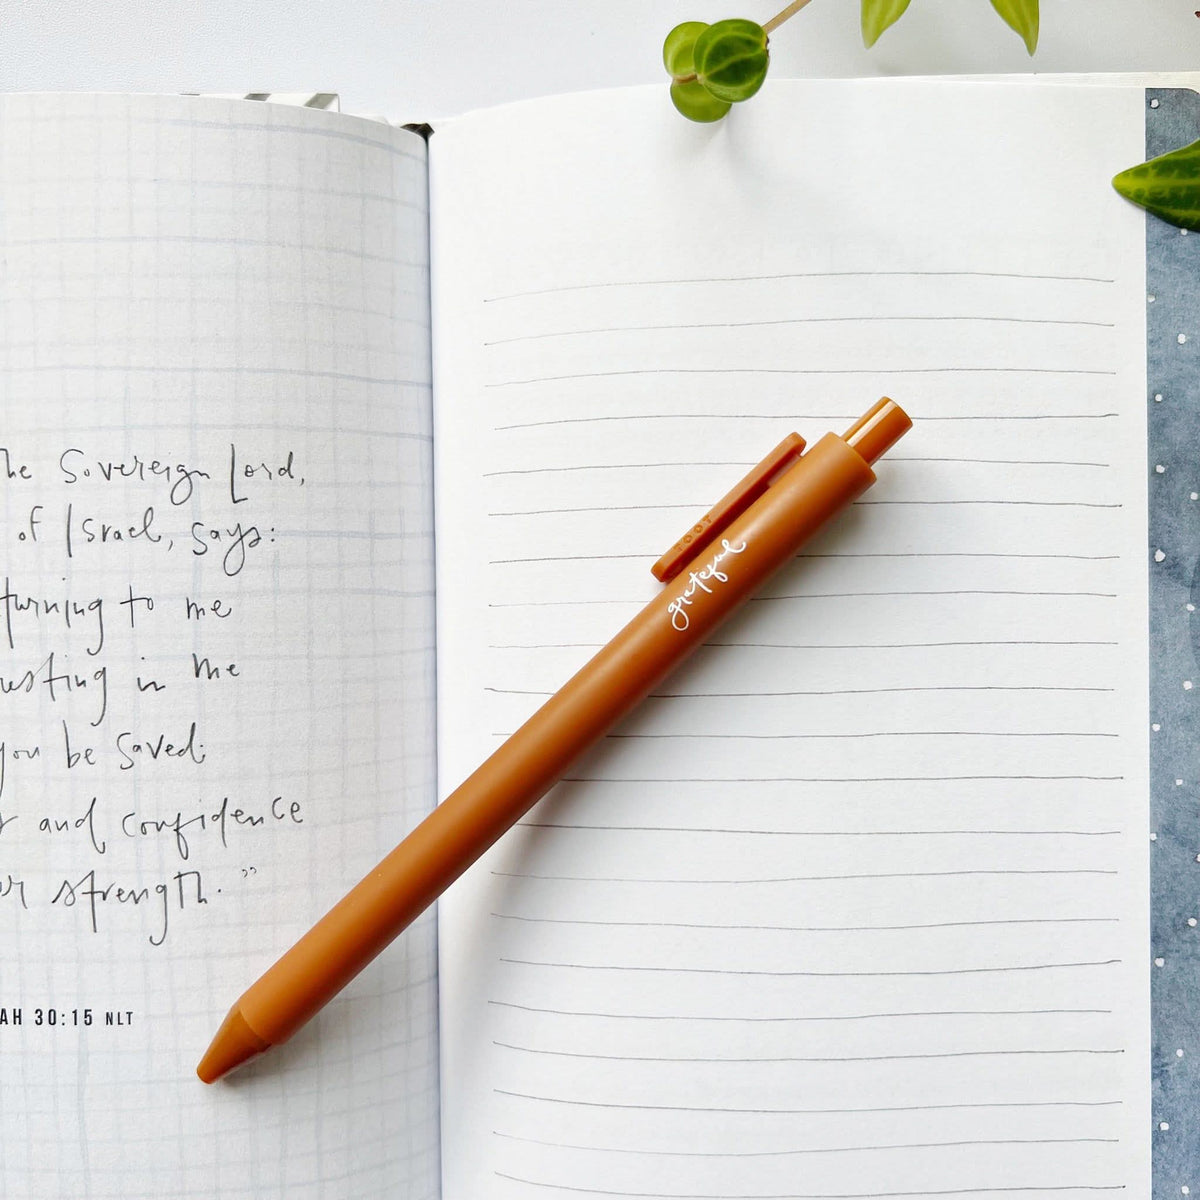 he Sovereign Lord,
of Israel, says:
turning to me
esting in me
you be saved:
and confidence
or strength."
AH 30:15 NLT
grateful